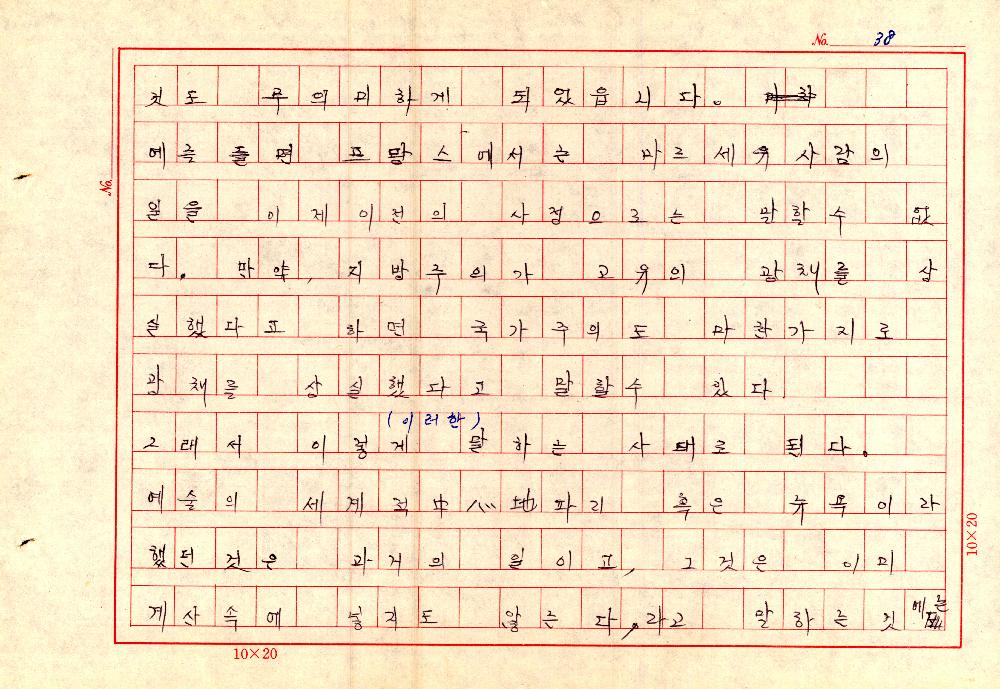 No. 38
것도 무의미하게 되었읍니다.
예를 들면 프랑스에서는 마르세유 사람의
일을 이제 이전의 사정으로는 말할수 없
다. 만약, 지방주의가 고유의 광채를 상
실했다고 하면 국가주의도 마찬가지로
광채를 상실했다고 말할수 있다
(이러한)
그래서 이렇게 말하는 사태로 된다.
예술의 세계적中心地파리 혹은 뉴욕이라
했던 것은 과거의 일이고, 그것은 이미
계산속에 넣지도 않는다, 라고 말하는것
No.
10×20
10×20